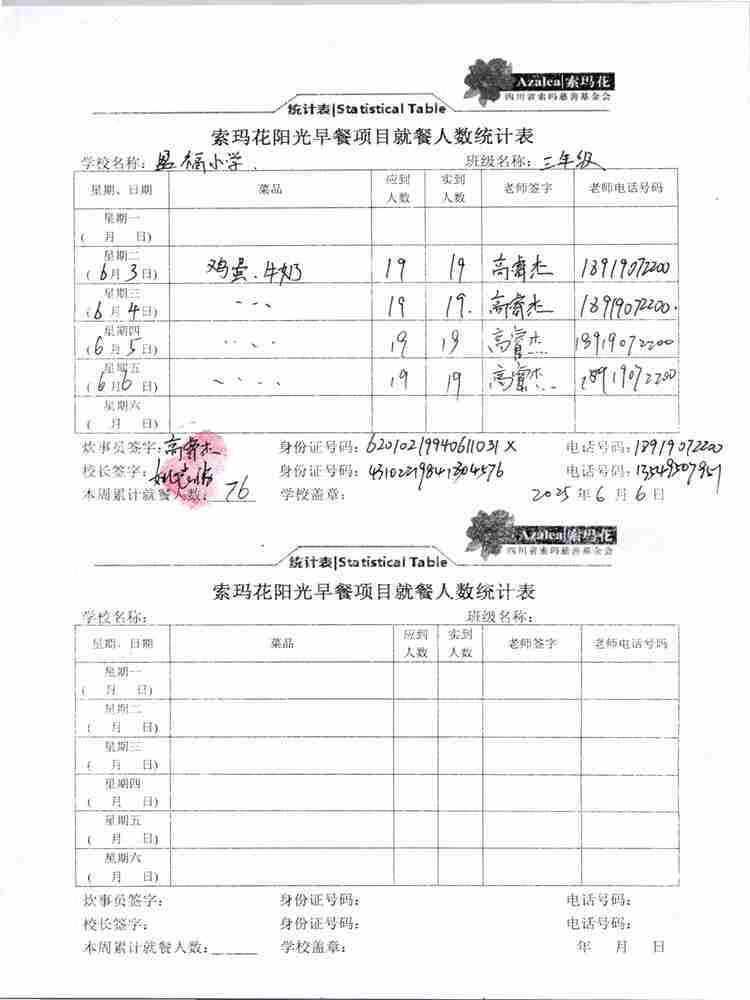 Azalea|索玛花
四川省索玛慈善基金会
统计表|Statistical Table
索玛花阳光早餐项目就餐人数统计表
学校名称: 福小学. 班级名称: 三年级
星期、日期 菜品 应到人数 实到人数 老师签字 老师电话号码
星期一
( 月 日)
星期二
(6月3日) 鸡蛋、牛奶 19 19 高睿杰 18919072200
星期三
(6月4日) 、、、 19 19. 高睿杰 18919072200.
星期四
(6月5日) 、、、 19 19 高睿杰. 18919072200
星期五
(6月6日) 、、、 19 19 高睿杰. 18919072200
星期六
( 月 日)
炊事员签字: 高睿杰 身份证号码: 62010219940611031X 电话号码: 18919072200
校长签字: 身份证号码: 电话号码:
本周累计就餐人数: 76 学校盖章: 2025年6月6日
Azalea|索玛花
四川省索玛慈善基金会
统计表|Statistical Table
索玛花阳光早餐项目就餐人数统计表
学校名称: 班级名称:
星期、日期 菜品 应到人数 实到人数 老师签字 老师电话号码
星期一
( 月 日)
星期二
( 月 日)
星期三
( 月 日)
星期四
( 月 日)
星期五
( 月 日)
星期六
( 月 日)
炊事员签字: 身份证号码: 电话号码:
校长签字: 身份证号码: 电话号码:
本周累计就餐人数:______ 学校盖章: 年 月 日